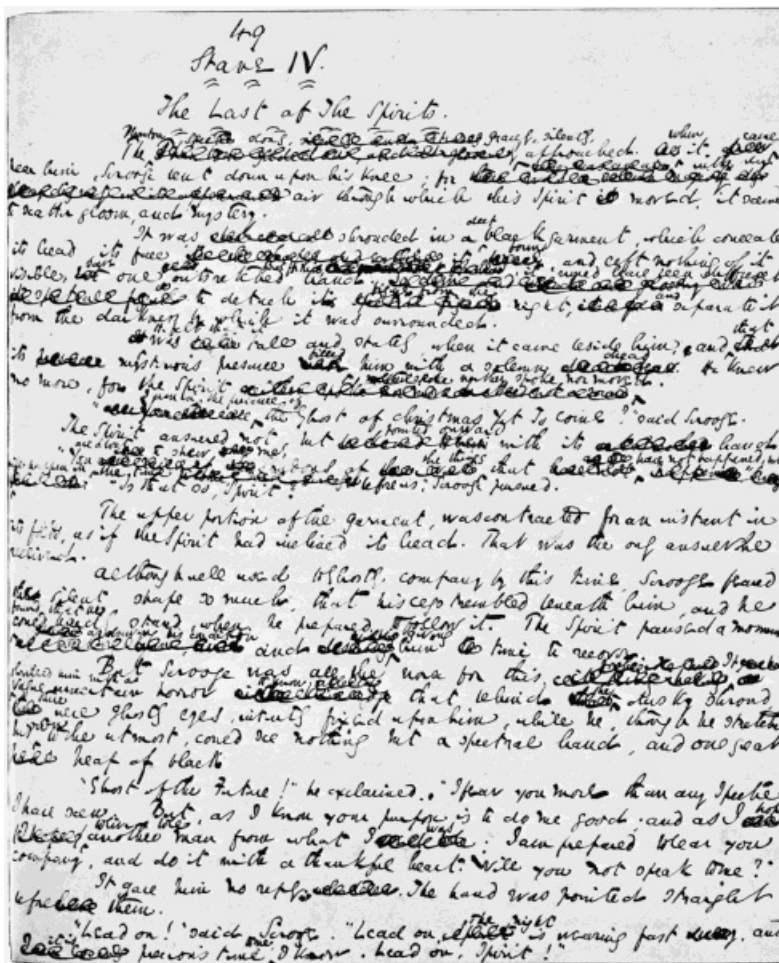 49
Stave IV.
The Last of The Spirits.
Phantom slowly, gravely, silently, when came
The approached. As it
near him, Scrooge bent down upon his knee; for in the very
air through which this Spirit moved, it seemed
to scatter gloom and mystery.
deep
It was shrouded in a black garment, which concealed
its head, its face, its form, and left nothing of it
visible, save one outstretched hand. it would have been difficult
to detach its figure from the night, and separate it
from the darkness by which it was surrounded.
He felt that it
was tall and stately when it came beside him, and that
its mysterious presence filled him with a solemn dread. He knew
no more, for the Spirit neither spoke nor moved.
I am in the presence of
the Ghost of Christmas Yet To Come?" said Scrooge.
pointed onward
The Spirit answered not, but with its hand.
are about to shew me
"You shadows of the things that have not happened, but
will happen in the time before us," Scrooge pursued.
"Is that so, Spirit?"
The upper portion of the garment, was contracted for an instant in
its folds, as if the Spirit had inclined its head. That was the only answer he
received.
Although well used to ghostly company by this time, Scrooge feared
the silent shape so much that his legs trembled beneath him, and he
found that he
could hardly stand when he prepared to follow it. The Spirit paused a moment,
as observing his condition
and giving him time to recover.
But Scrooge was all the worse for this. It
thrilled him with a
vague uncertain horror to know that behind the dusky shroud
there
were ghostly eyes intently fixed upon him, while he, though he stretched
his own
to the utmost, could see nothing but a spectral hand, and one great
heap of black.
"Ghost of the Future!" he exclaimed. "I fear you more than any Spectre
I have seen. But, as I know your purpose is to do me good, and as I hope
to live to be
another man from what I was, I am prepared to bear you
company, and do it with a thankful heart. Will you not speak to me?"
It gave him no reply. The hand was pointed straight
before them.
"Lead on!" said Scrooge. "Lead on. The night is waning fast, and
it is precious time to me, I know. Lead on, Spirit!"